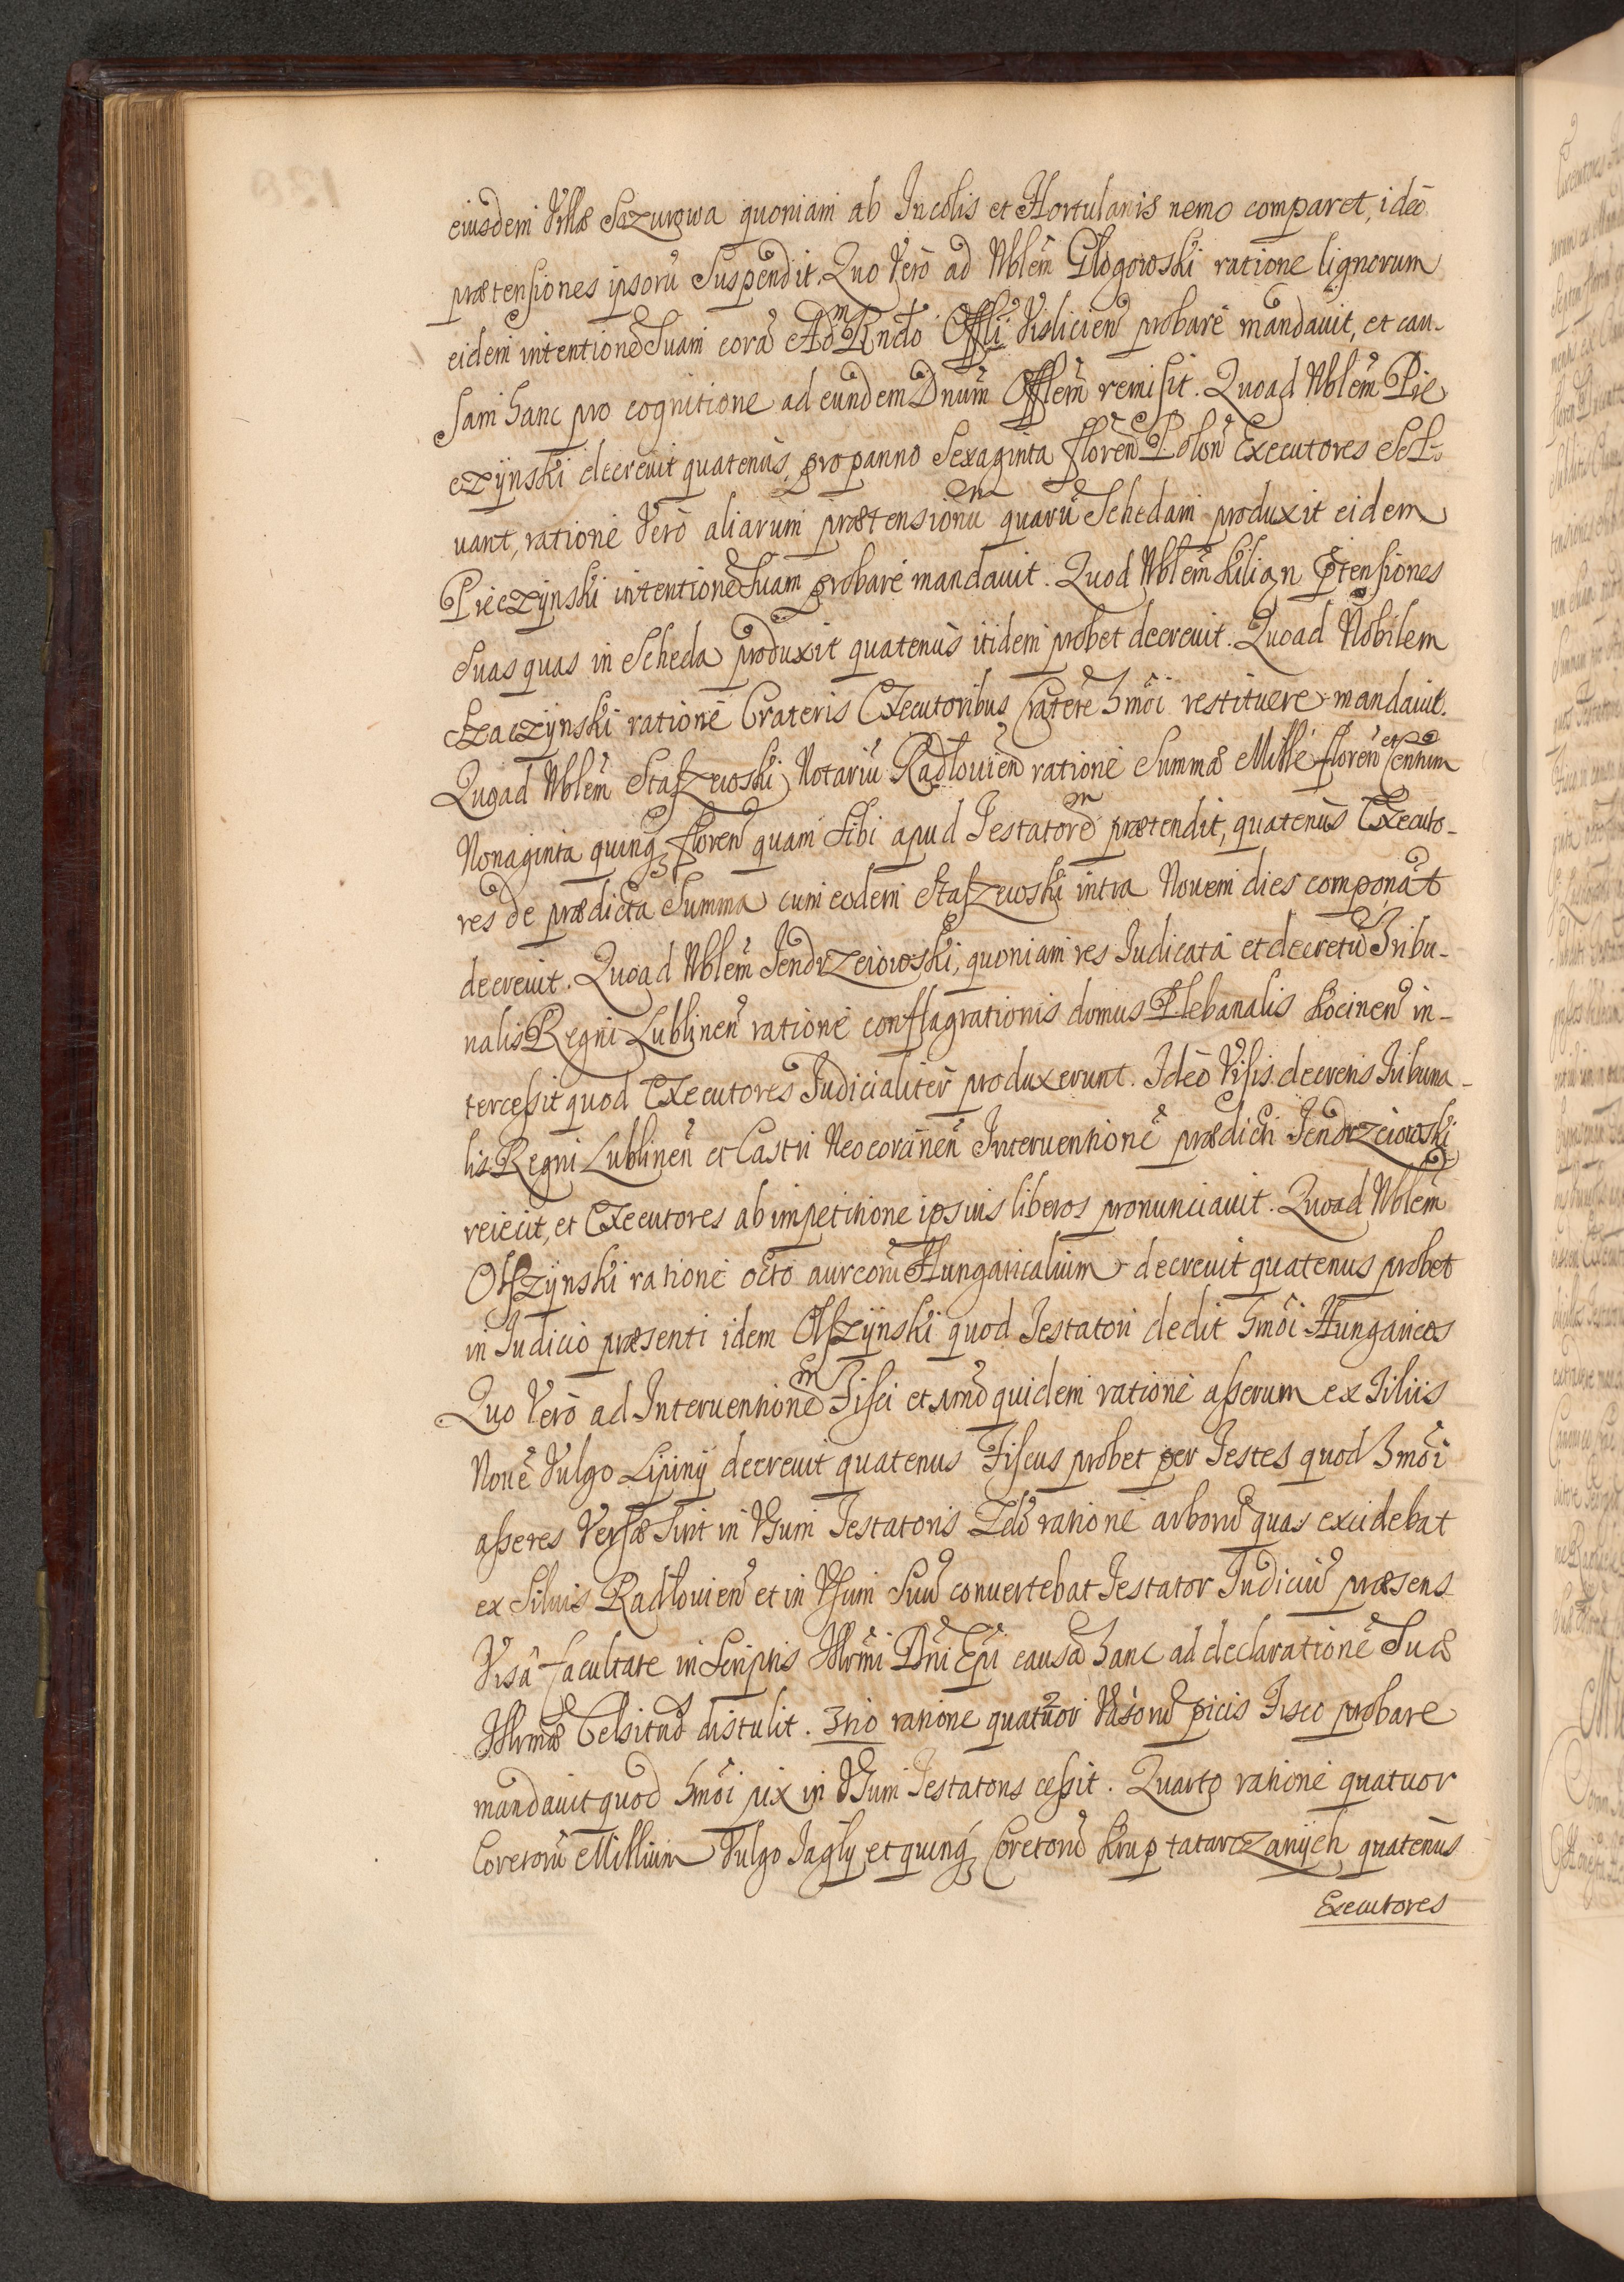 eiusdem Villæ Sazurowa quoniam ab Incolis et Hortulanis nemo comparet, ideo
prætensiones ipsorũ Suspendit. Quo Vero ad Nblem Głogowski ratione lignorum
eidem intentionẽ Suam corã Adm Rndo Offli Visliciens̃ probare mandauit, et cau-
sam hanc pro cognitione ad eundem Dnum Offlem remisit. Quoad Nblem Pie
czÿnski decreuit quatenus, pro panno Sexaginta floren̄ Polon̄ Executores Sol-
uant, ratione Vero aliarum prætensionũ quarũ Schedam produxit eidem
Pieczÿnski intentionẽ Suam probare mandauit. Quod Nblem Kilian p̃tensiones
Suas quas in Scheda produxit quatenus itidem probet decreuit. Quoad Nobilem
Szaczÿnski ratione Crateris Executoribus Cratere hmõi restituere mandauit.
Quoad Nblem Staszewski Notariũ Radłouien̄ ratione Summæ Mille floren̄ centum et
Nonaginta quinqꝫ floren̄ quam Sibi apud Testatorem prætendit, quatenus Executo-
res de prædicta Summa cum eodem Staszewski intra Nouem dies componãt
decreuit. Quoad Nblem Jendrzeiowski, quoniam res Iudicata et decretũ Tribu-
nalis Regni Lublinen̄ ratione conflagrationis domus Plebanalis Kocinen̄ in-
tercessit quod Executores Judicialiter produxerunt. Ideo Visis decretis Tribuna-
lis Regni Lublinen̄ et Castri Neocorcinen̄ Interuentionẽ prædicti Jendrzeiowski
reiecit, et Executores ab impetitione ipsius liberos pronunciauit. Quoad Nblem
Olszÿnski ratione octo aureorũ Hungaricalium decreuit quatenus probet
in Iudicio præsenti idem Olszÿnski quod Testatori dedit hmõi Hungaricos
Quo Vero ad Interuentionem Fisci et 1mo quidem ratione asserum ex Siluis
Noue Vulgo Lipinÿ decreuit quatenus Fiscus probet per Testes quod hmõi
asseres Versæ Sint in Vsum Testatoris 2do ratione arborũ quas excidebat
ex Siluis Radłouien̄ et in Vsum Suũ conuertebat Testator Judiciũ præsens
Visâ facultate in Scriptis Illrmi Dni Epi causã hanc ad declarationẽ Suæ
Illrmæ Celsitud̄ distulit. 3tio ratione quatuor Vasorũ picis Fisco probare
mandauit quod hmõi pix in Vsum Testatoris cessit. Quarto ratione quatuor
Coretorũ Millium Vulgo Jagłÿ et quinqꝫ Coretorũ Krup tatarczanÿch quatenus
Executores